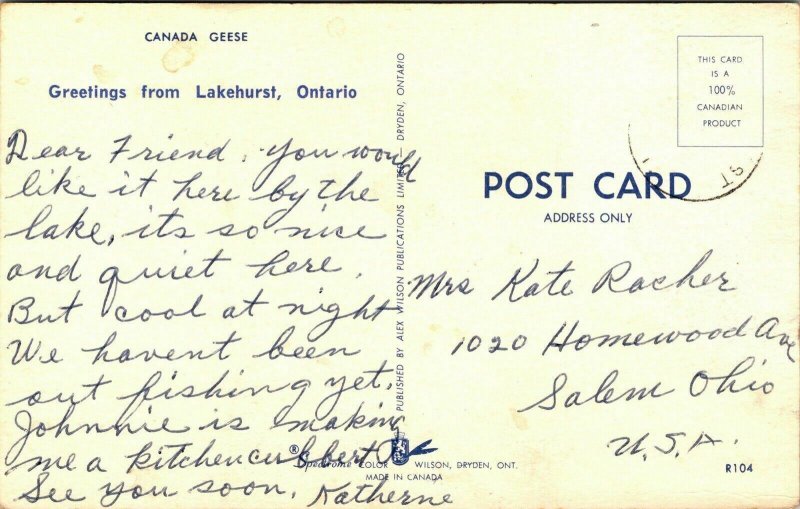 CANADA GEESE
Greetings from Lakehurst, Ontario
Dear Friend, You would
like it here by the
lake, its so nice
and quiet here.
But cool at night
We havent been
out fishing yet.
Johnnie is making
me a kitchen cubbert
See you soon. Katherne
PUBLISHED BY ALEX WILSON PUBLICATIONS LIMITED — DRYDEN, ONTARIO
® COLOR WILSON, DRYDEN, ONT.
MADE IN CANADA
THIS CARD
IS A
100%
CANADIAN
PRODUCT
ST
POST CARD
ADDRESS ONLY
Mrs Kate Racher
1020 Homewood Ave
Salem Ohio
U.S.A.
R104